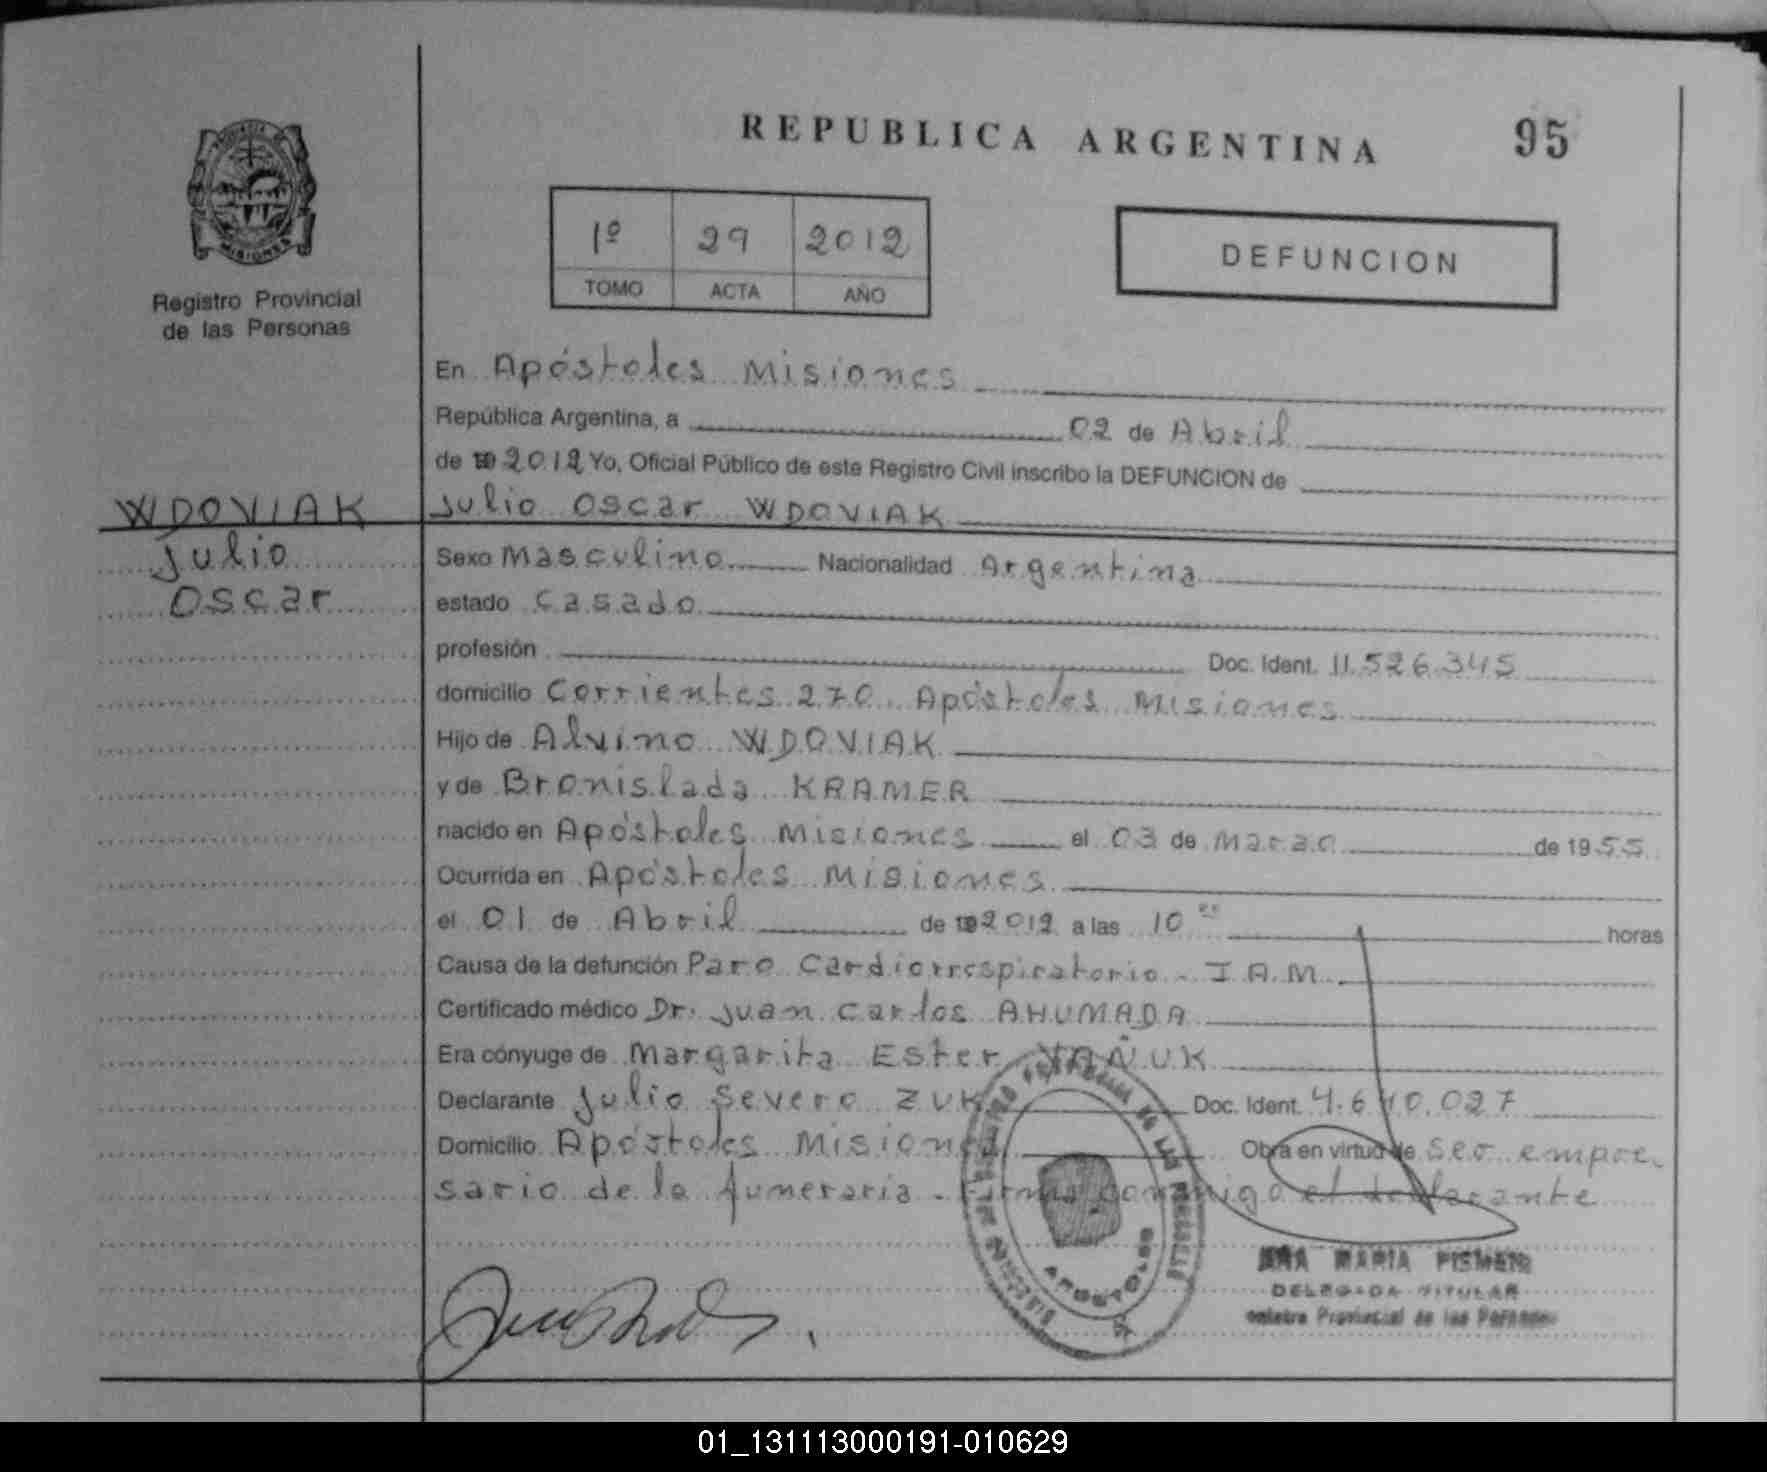 REPUBLICA ARGENTINA 95
MISIONES
Registro Provincial
de las Personas
1º 29 2012
TOMO ACTA AÑO
DEFUNCION
En Apóstoles Misiones
República Argentina, a 02 de Abril
de 2012 Yo, Oficial Público de este Registro Civil inscribo la DEFUNCION de
WDOVIAK
Julio
Oscar
Julio Oscar WDOVIAK
Sexo Masculino Nacionalidad Argentina
estado Casado
profesión Doc. Ident. 11.526.345
domicilio Corrientes 270 Apóstoles Misiones
Hijo de Alvino WDOVIAK
y de Bronislada KRAMER
nacido en Apóstoles Misiones el 03 de Marzo de 1955
Ocurrida en Apóstoles Misiones
el 01 de Abril de 2012 a las 10 horas
Causa de la defunción Paro Cardiorrespiratorio - I.A.M.
Certificado médico Dr. Juan Carlos AHUMADA
Era cónyuge de Margarita Ester YAÑUK
Declarante Julio Severo ZUK Doc. Ident. 4.640.027
Domicilio Apóstoles Misiones Obra en virtud de ser empre-
sario de la funeraria - Firma conmigo el declarante
APOSTOLES
MARIA
DELEGADA TITULAR
Registro Provincial de las Personas
01_131113000191-010629